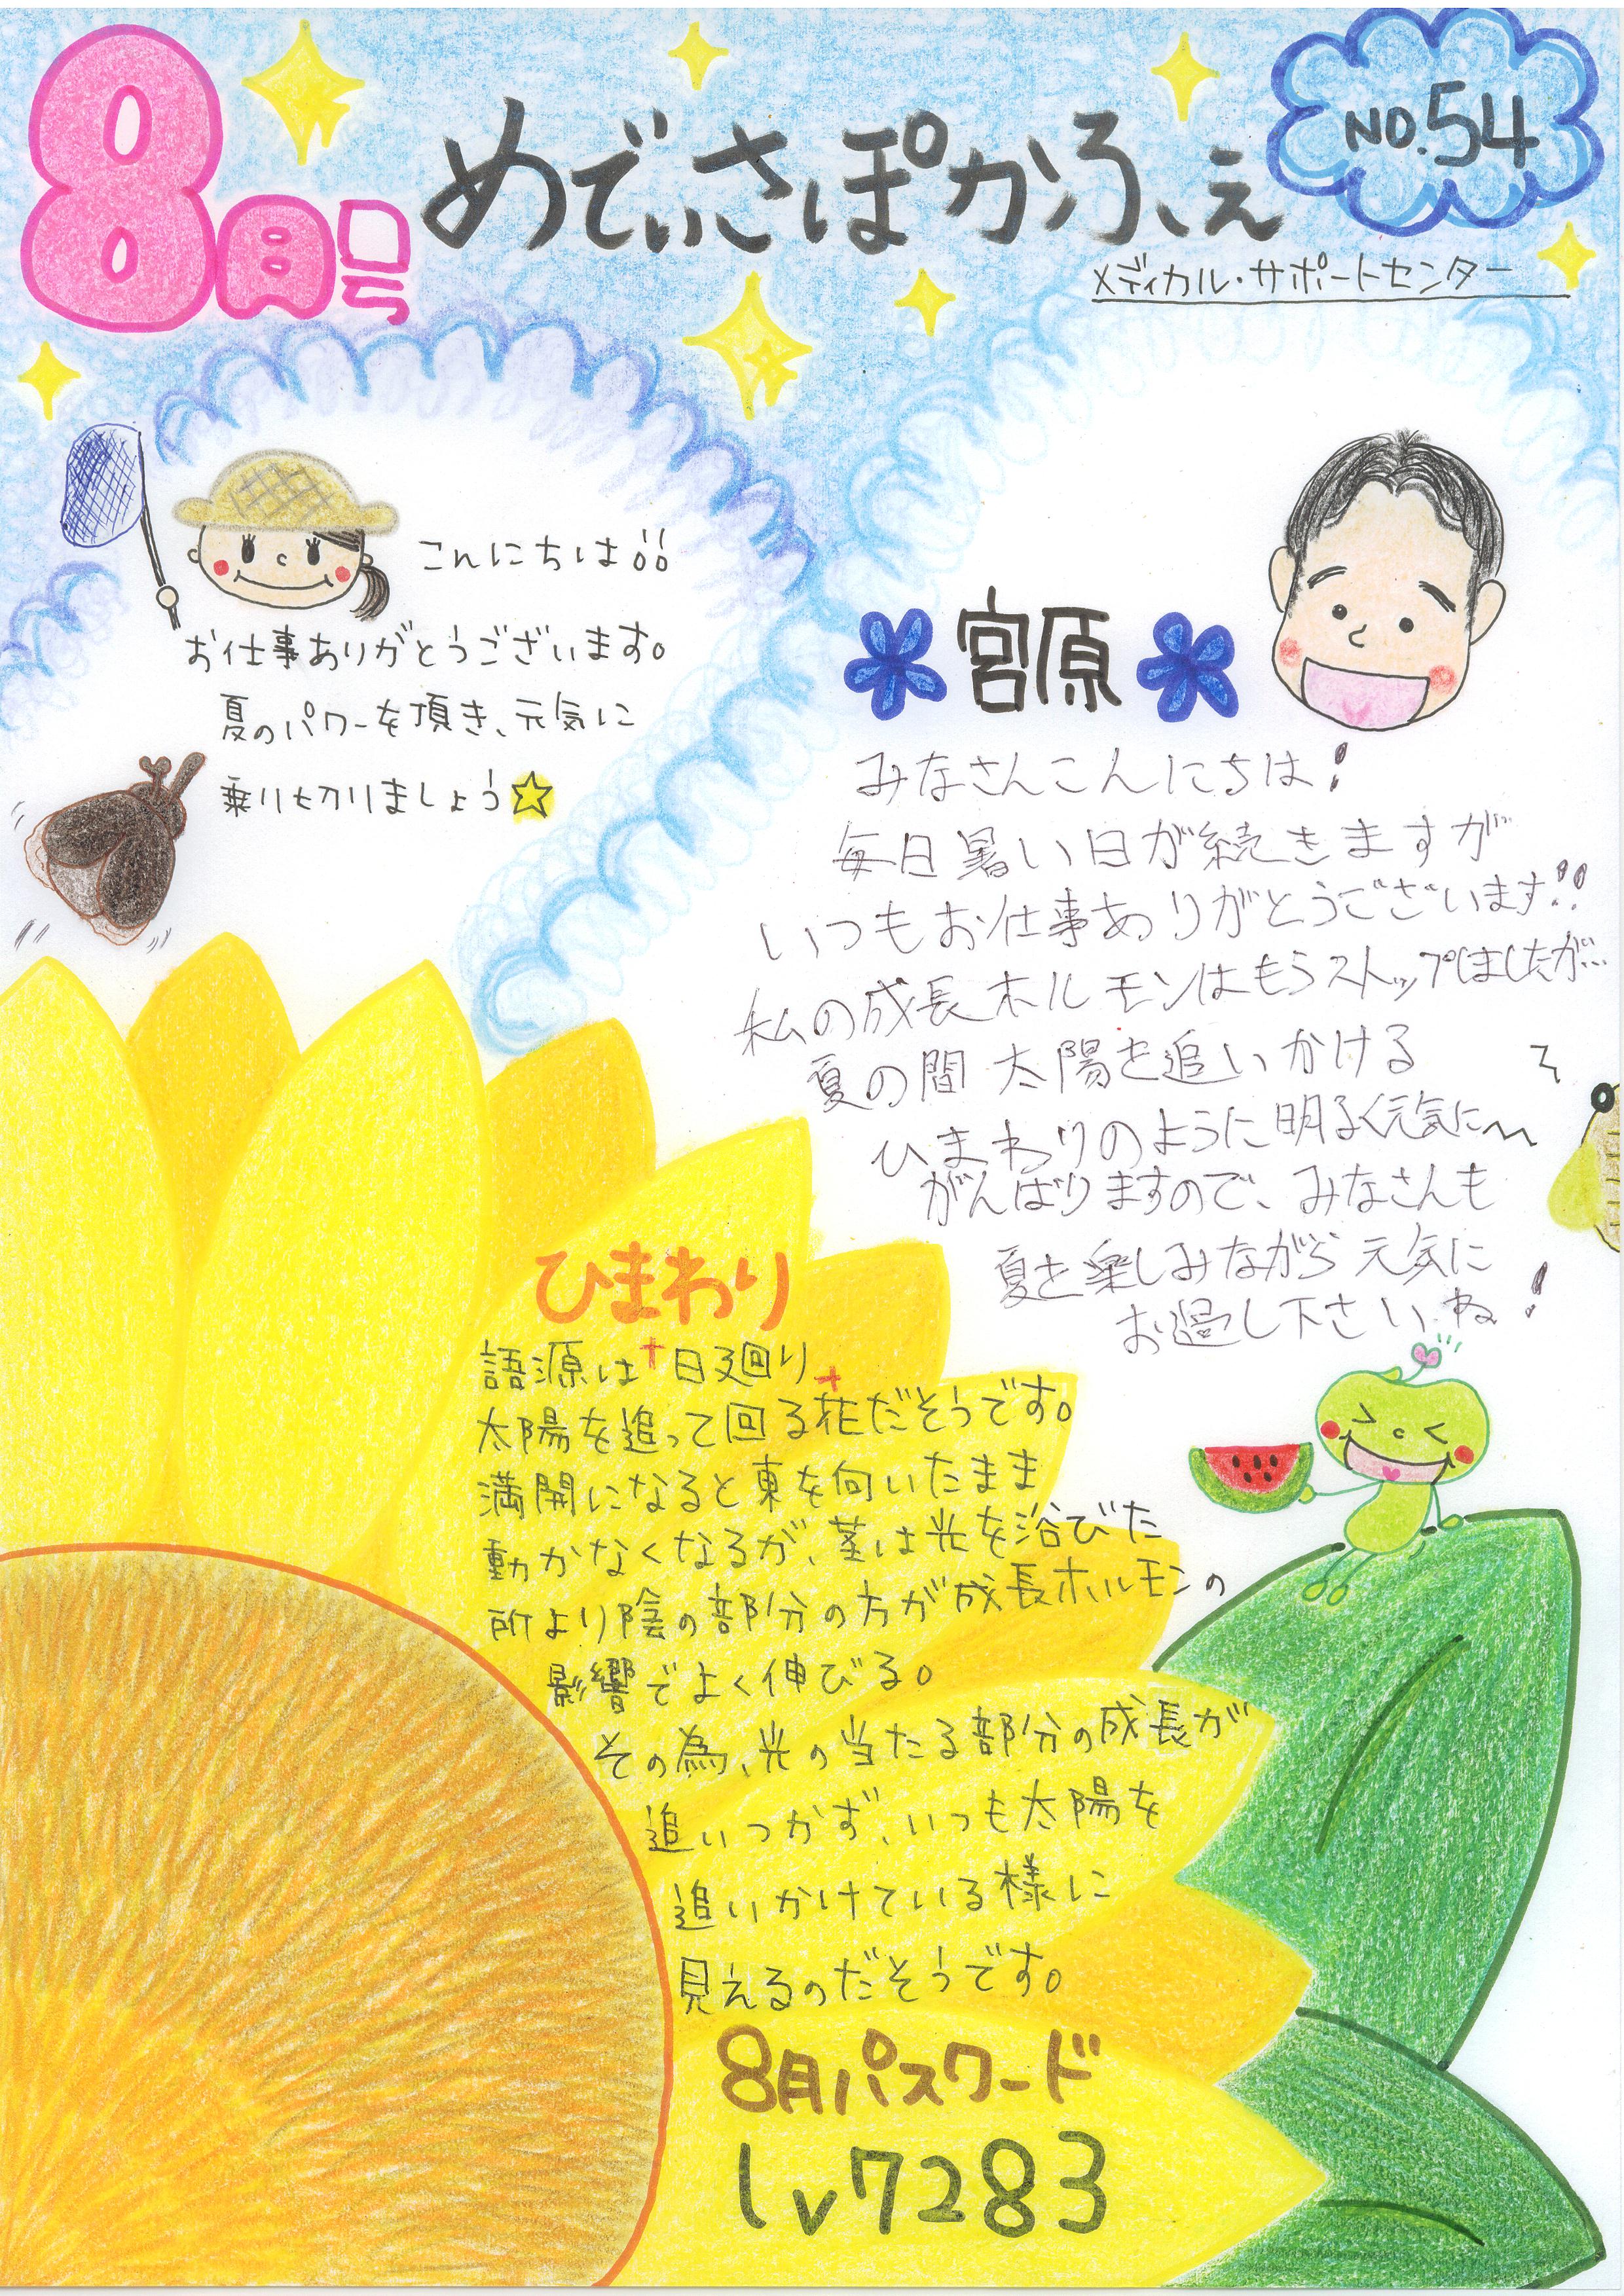 8月号
めでぃさぽかふぇ
NO.54
メディカル・サポートセンター
こんにちは!!
お仕事ありがとうございます。
夏のパワーを頂き、元気に
乗り切りましょう☆
宮原
みなさんこんにちは!
毎日暑い日が続きますが
いつもお仕事ありがとうございます!!
私の成長ホルモンはもうストップしましたが…
夏の間太陽を追いかける
ひまわりのように明るく元気に〜
がんばりますので、みなさんも
夏を楽しみながら元気に
お過し下さいね!
ひまわり
語源は"日廻り"
太陽を追って回る花だそうです。
満開になると東を向いたまま
動かなくなるが、茎は光を浴びた
所より陰の部分の方が成長ホルモンの
影響でよく伸びる。
その為、光の当たる部分の成長が
追いつかず、いつも太陽を
追いかけている様に
見えるのだそうです。
8月パスワード
lv7283